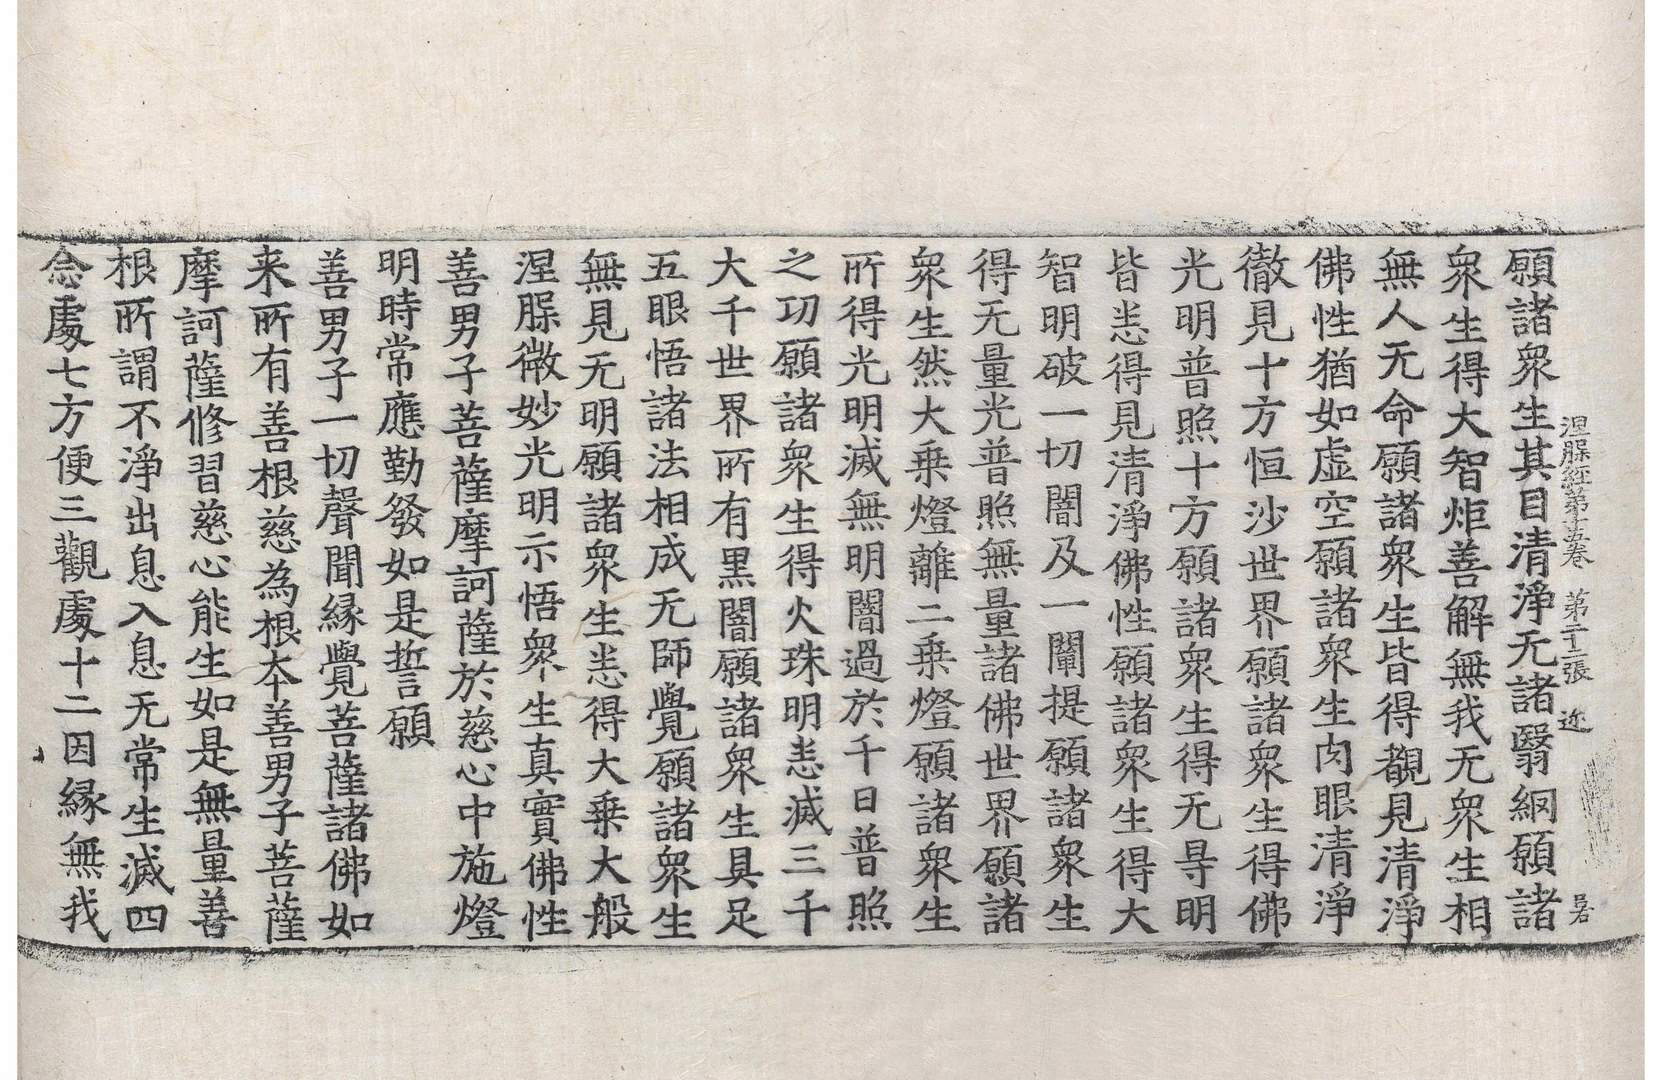 涅槃經第十五卷　第二十二張　迩　呂
願諸衆生其目清淨无諸翳網願諸
衆生得大智炬善解無我无衆生相
無人无命願諸衆生皆得覩見清淨
佛性猶如虛空願諸衆生肉眼清淨
徹見十方恒沙世界願諸衆生得佛
光明普照十方願諸衆生得无㝵明
皆悉得見清淨佛性願諸衆生得大
智明破一切闇及一闡提願諸衆生
得无量光普照無量諸佛世界願諸
衆生然大乗燈離二乗燈願諸衆生
所得光明滅無明闇過於千日普照
之功願諸衆生得火珠明悉滅三千
大千世界所有黑闇願諸衆生具足
五眼悟諸法相成无師覺願諸衆生
無見无明願諸衆生悉得大乗大般
涅槃微妙光明示悟衆生真實佛性
善男子菩薩摩訶薩於慈心中施燈
明時常應勤發如是誓願
善男子一切聲聞緣覺菩薩諸佛如
来所有善根慈為根夲善男子菩薩
摩訶薩修習慈心能生如是無量善
根所謂不淨出息入息无常生滅四
念處七方便三觀處十二因緣無我